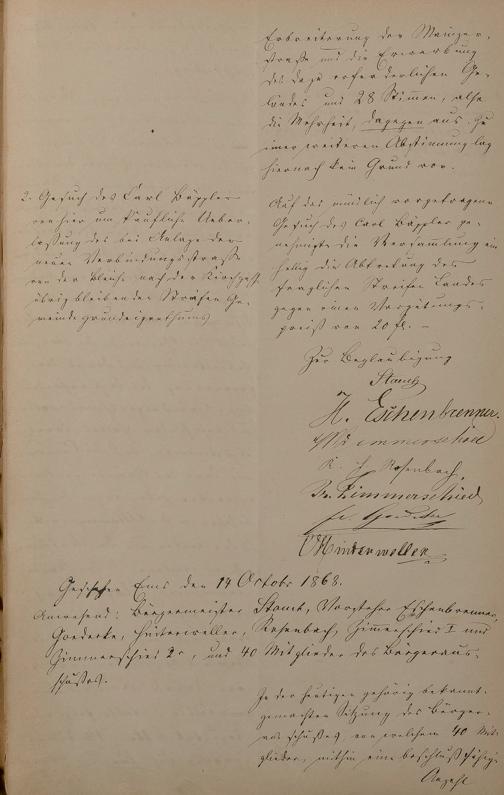 Erbreiterung der Mainzer-
straße und die Erwerbung
des dazu erforderlichen Ge-
landes und 28 Stimmen, also
die Mehrheit, dagegen aus. Zu
einer weiteren Abstimmung lag
hiernach kein Grund vor.
2. Gesuch des Carl Böppler
von hier um käufliche Ueber-
lassung des bei Anlage der
neuen Verbindungsstraße
von der Bleiche nach der
übrig bleibenden Streifen Ge-
meindegrundeigenthums
Auf das mündlich vorgetragene
Gesuch des Carl Böppler ge-
nehmigte die Versammlung ein-
hellig die Abtretung des
fraglichen Streifen Landes
gegen einen Vergütungs-
preiß von 20 fl. —
Zur Beglaubigung
Stamb
H. Eschenbrenner.
Rosenbach
Zimmerschied
Hinterweller
Geschehen Ems den 14 Octobr 1868.
Anwesend: Bürgermeister Stamb, Vorsteher Eschenbrenner,
Goedecke, Hinterweller, Rosenbach, Zimmerschied I und
Zimmerschied 2r, und 40 Mitglieder des Bürgeraus-
schußes.
In der heutigen gehörig bekannt-
gemachten Sitzung des Bürger-
ausschußes, von welchem 40 Mit-
glieder, mithin eine beschlußfähige
Anzahl